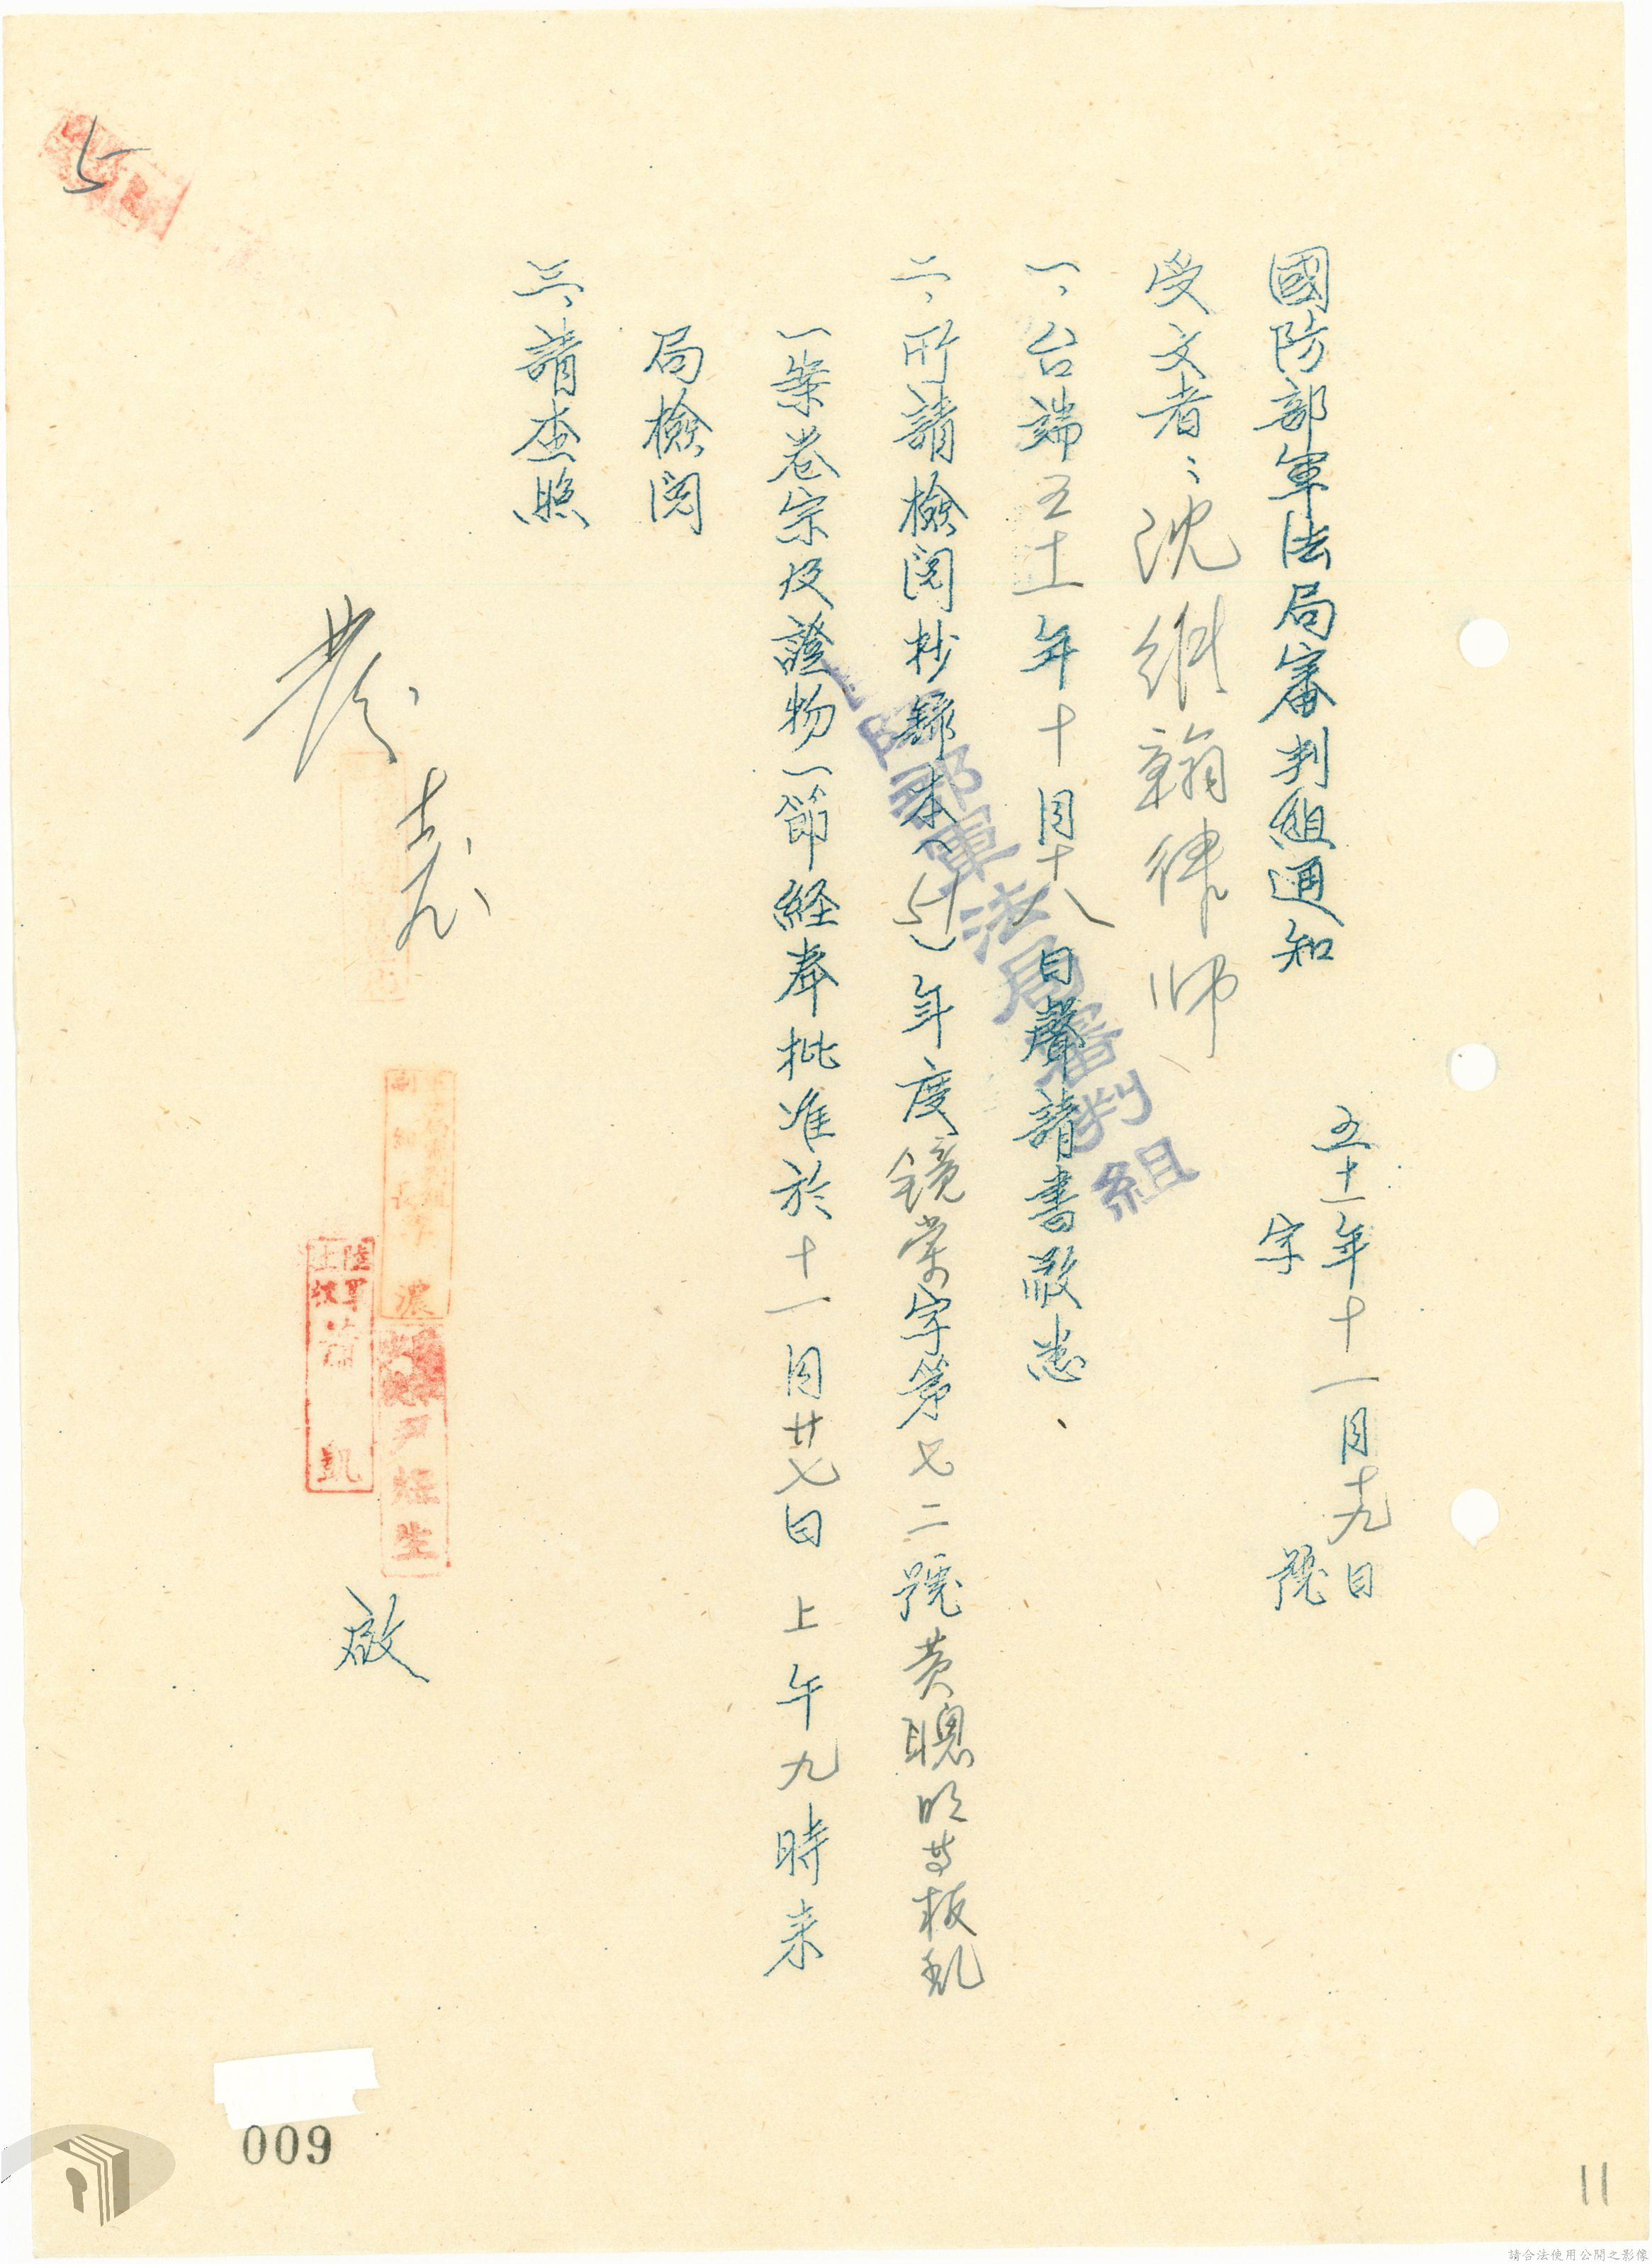 國防部軍法局審判組通知
五十一年十一月十九日
字 號
受文者：沈繼翰律師
一、台端五十一年十月十八日聲請書敬悉、
二、所請檢閱抄錄本(51)年度鏡棠字第七二號黃聰明等叛亂
一案卷宗及證物一節經奉批准於十一月廿七日上午九時來
局檢閱
三、請查照
部軍法局審判組
陸軍
蕭
凱
濃
生
啟
009
11
請合法使用公開之影像